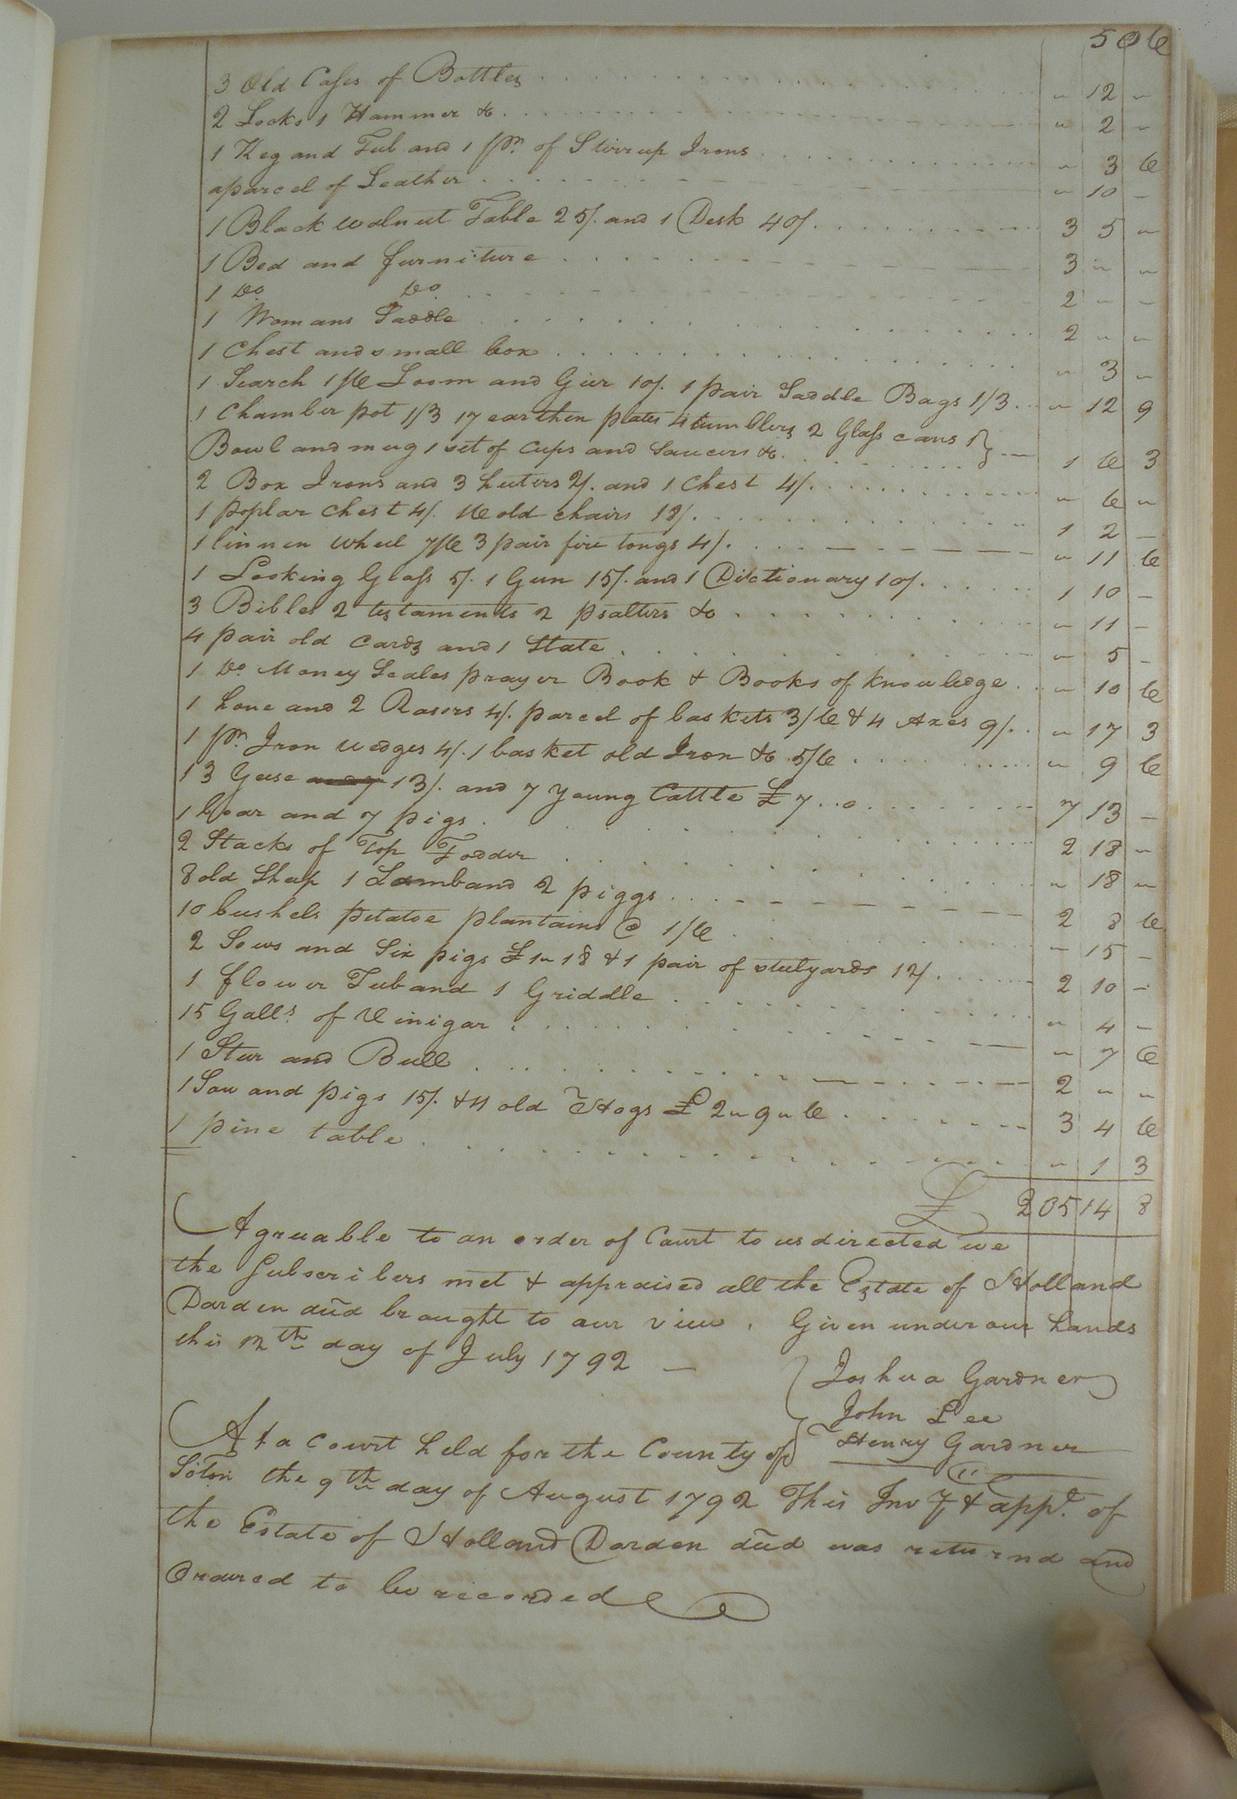 506
3 Old Cases of Bottles " 12 "
2 Locks 1 Hammer &c " 2 "
1 Keg and Tub and 1 pr. of Stirrup Irons " 3 6
a parcel of Leather " 10 -
1 Black walnut Table 25/. and 1 Desk 40/. 3 5 "
1 Bed and furniture 3 " "
1 Do Do 2 " "
1 Womans Saddle 2 " "
1 Chest and small box " 3 "
1 Search 1/6 Loom and Gier 10/. 1 pair Saddle Bags 1/3 " 12 9
1 Chamber pot 1/3 17 earthen plates 4 tumblers 2 Glass cans 1
Bowl and mug 1 set of cups and Saucers &c 1 6 3
2 Box Irons and 3 heeters 2/. and 1 Chest 4/. " 6 "
1 poplar chest 4/. 16 old chairs 18/. 1 2 -
1 linnen wheel 7/6 3 pair fire tongs 4/. " 11 6
1 Looking Glass 5/. 1 Gun 15/. and 1 Dictionary 10/. 1 10 -
3 Bibles 2 testaments 2 psalters &c " 11 -
4 pair old cards and 1 State " 5 -
1 Do. Money Scales prayer Book & Books of knowledge " 10 6
1 hone and 2 Rasors 4/. parcel of baskets 3/6 & 4 Axes 9/. " 17 3
1 pr. Iron wedges 4/. 1 basket old Iron &c 5/6 " 9 6
13 Geese 13/. and 7 young Cattle £7..0 7 13 -
1 boar and 7 pigs 2 18 "
2 Stacks of Top Fodder " 18 "
8 old Sheep 1 Lamb and 2 piggs 2 8 6
10 bushels petatoe plantains @ 1/6 " 15 -
2 Sows and Six pigs £1 " 18 & 1 pair of steelyards 12/. 2 10 -
1 flower Tub and 1 Griddle " 4 -
15 Galls. of Vinigar " 7 6
1 Stur and Bull 2 " "
1 Sow and pigs 15/. & 4 old Hogs £2 " 9 " 6 3 4 6
1 pine table " 1 3
£ 205 14 8
Agreeable to an order of Court to us directed we
the Subscribers met & appraised all the Estate of Holland
Darden decd brought to our view. Given under our hands
this 12th day of July 1792 —
Joshua Gardner
John Lee
Henry Gardner
At a Court held for the County of
Soton the 9th day of August 1792 This Invy & appt. of
the Estate of Holland Darden decd was returnd and
Ordered to be recorded